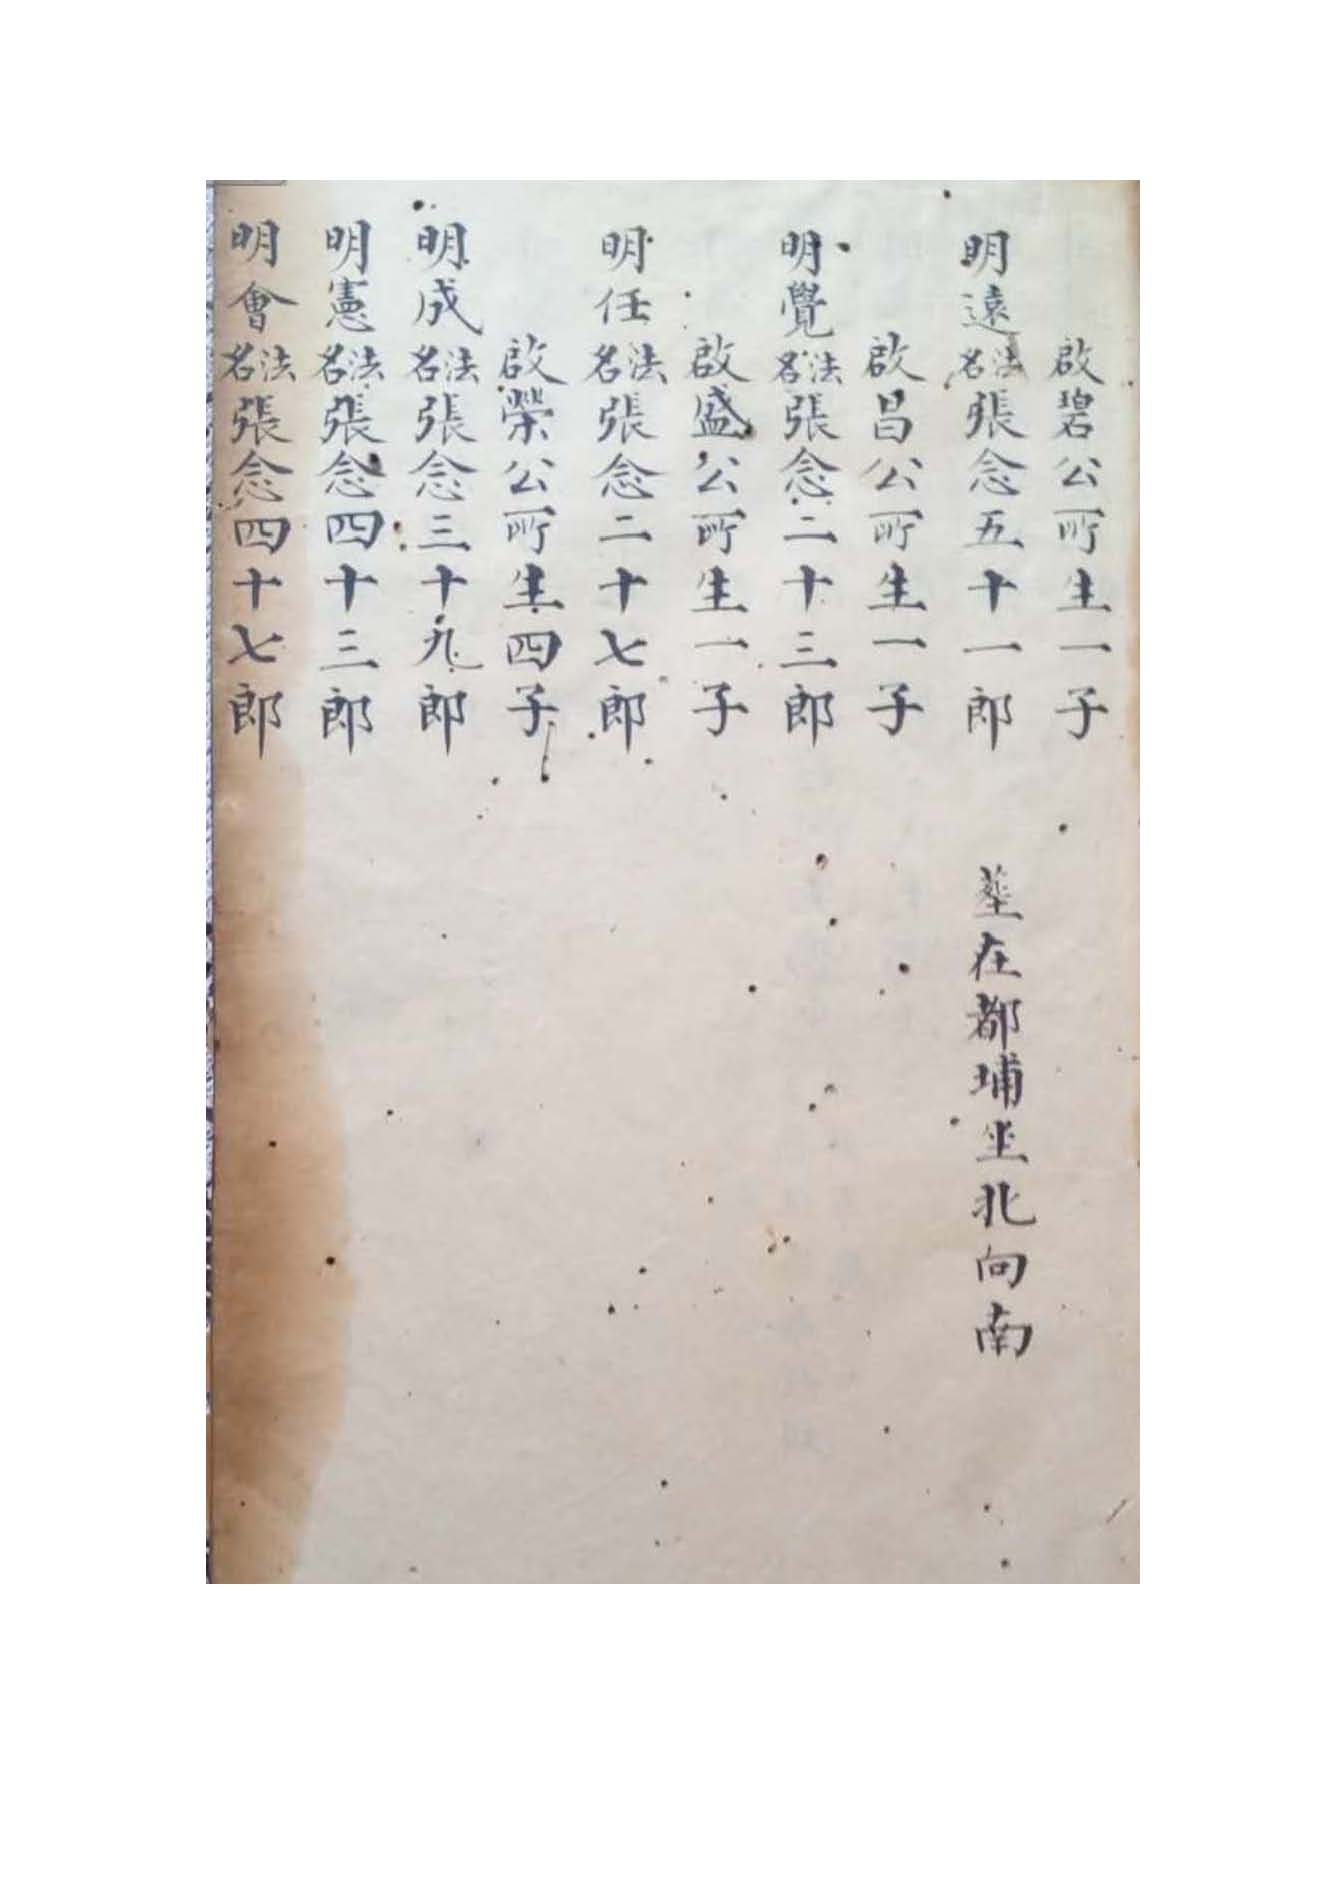 啟碧公所生一子
明遠法名張念五十一郎 塟在都埔坐北向南
啟昌公所生一子
明覺法名張念二十三郎
啟盛公所生一子
明任法名張念二十七郎
啟榮公所生四子
明成法名張念三十九郎
明憲法名張念四十三郎
明會法名張念四十七郎